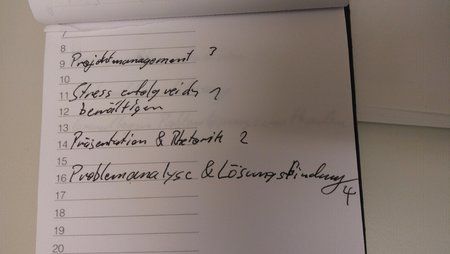 7
8
9 Projektmanagement 3
10
11 Stress erfolgreich 1
12 bewältigen
13
14 Präsentation & Rhetorik 2
15
16 Problemanalyse & Lösungsfindung
17 4
18
19
20